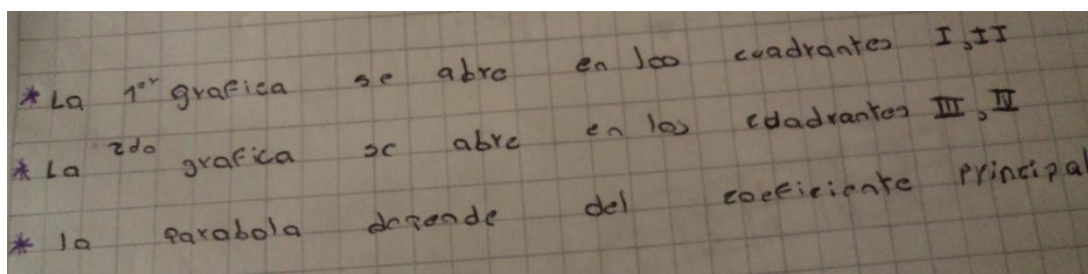 * La 1er grafica se abre en los cuadrantes I, II
* La 2do grafica se abre en los cuadrantes III, IV
* la parabola depende del coeficiente principal